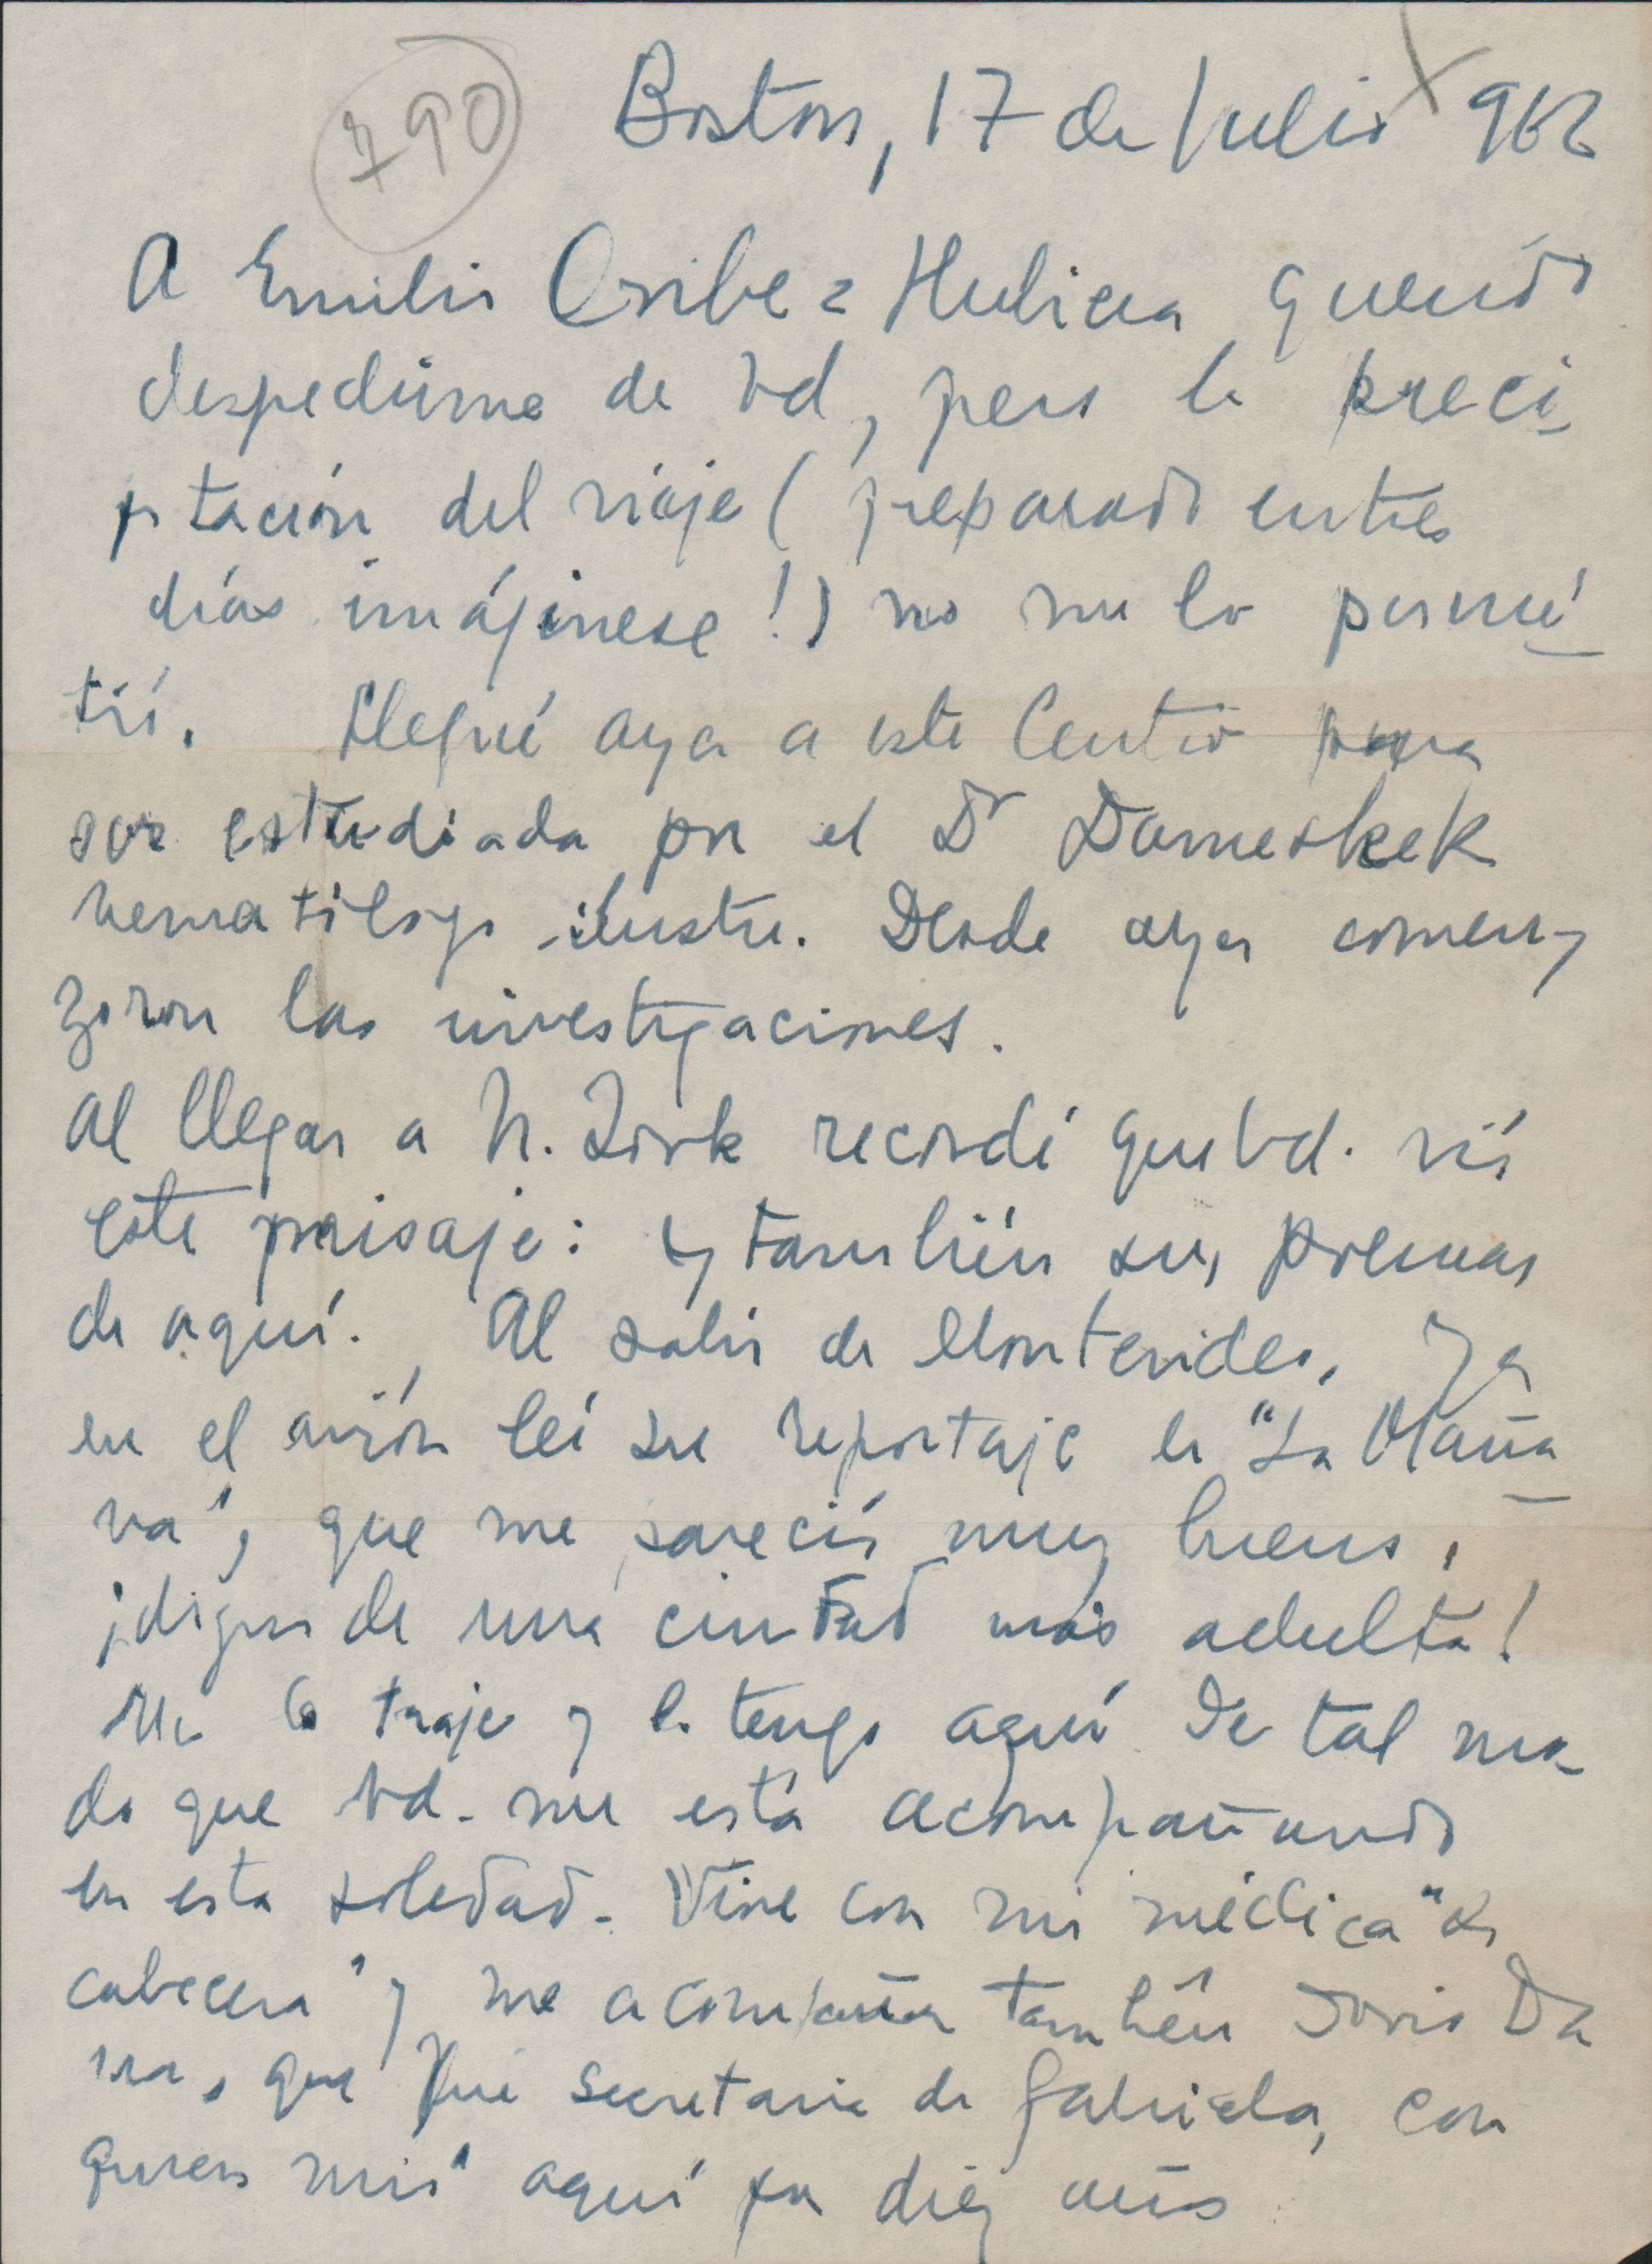 790
Boston, 17 de Julio 962
A Emilio Oribe = Hubiera querido
despedirme de Vd, pero la preci-
pitación del viaje (preparado en tres
días imagínese!) no me lo permi-
tió. Llegué ayer a este Centro para
ser estudiada por el Dr Dameshek
hematólogo ilustre. Desde ayer comen-
zaron las investigaciones.
Al llegar a N. York recordé que Vd. vió
este paisaje: y también sus poemas
de aquí. Al salir de Montevideo, ya
en el avión leí su reportaje en "La Maña-
na", que me pareció muy bueno,
¡digno de una ciudad más adulta!
Me lo traje y lo tengo aquí de tal mo-
do que Vd. me está acompañando
en esta soledad. Vine con mi médica "de
cabecera" y me acompaña también Doris Da
na, que fué secretaria de Gabriela, con
quien vivió aquí por diez años